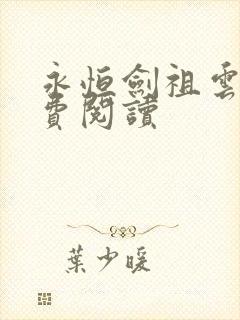 永恆劍祖雲
費閱讀
葉少暖